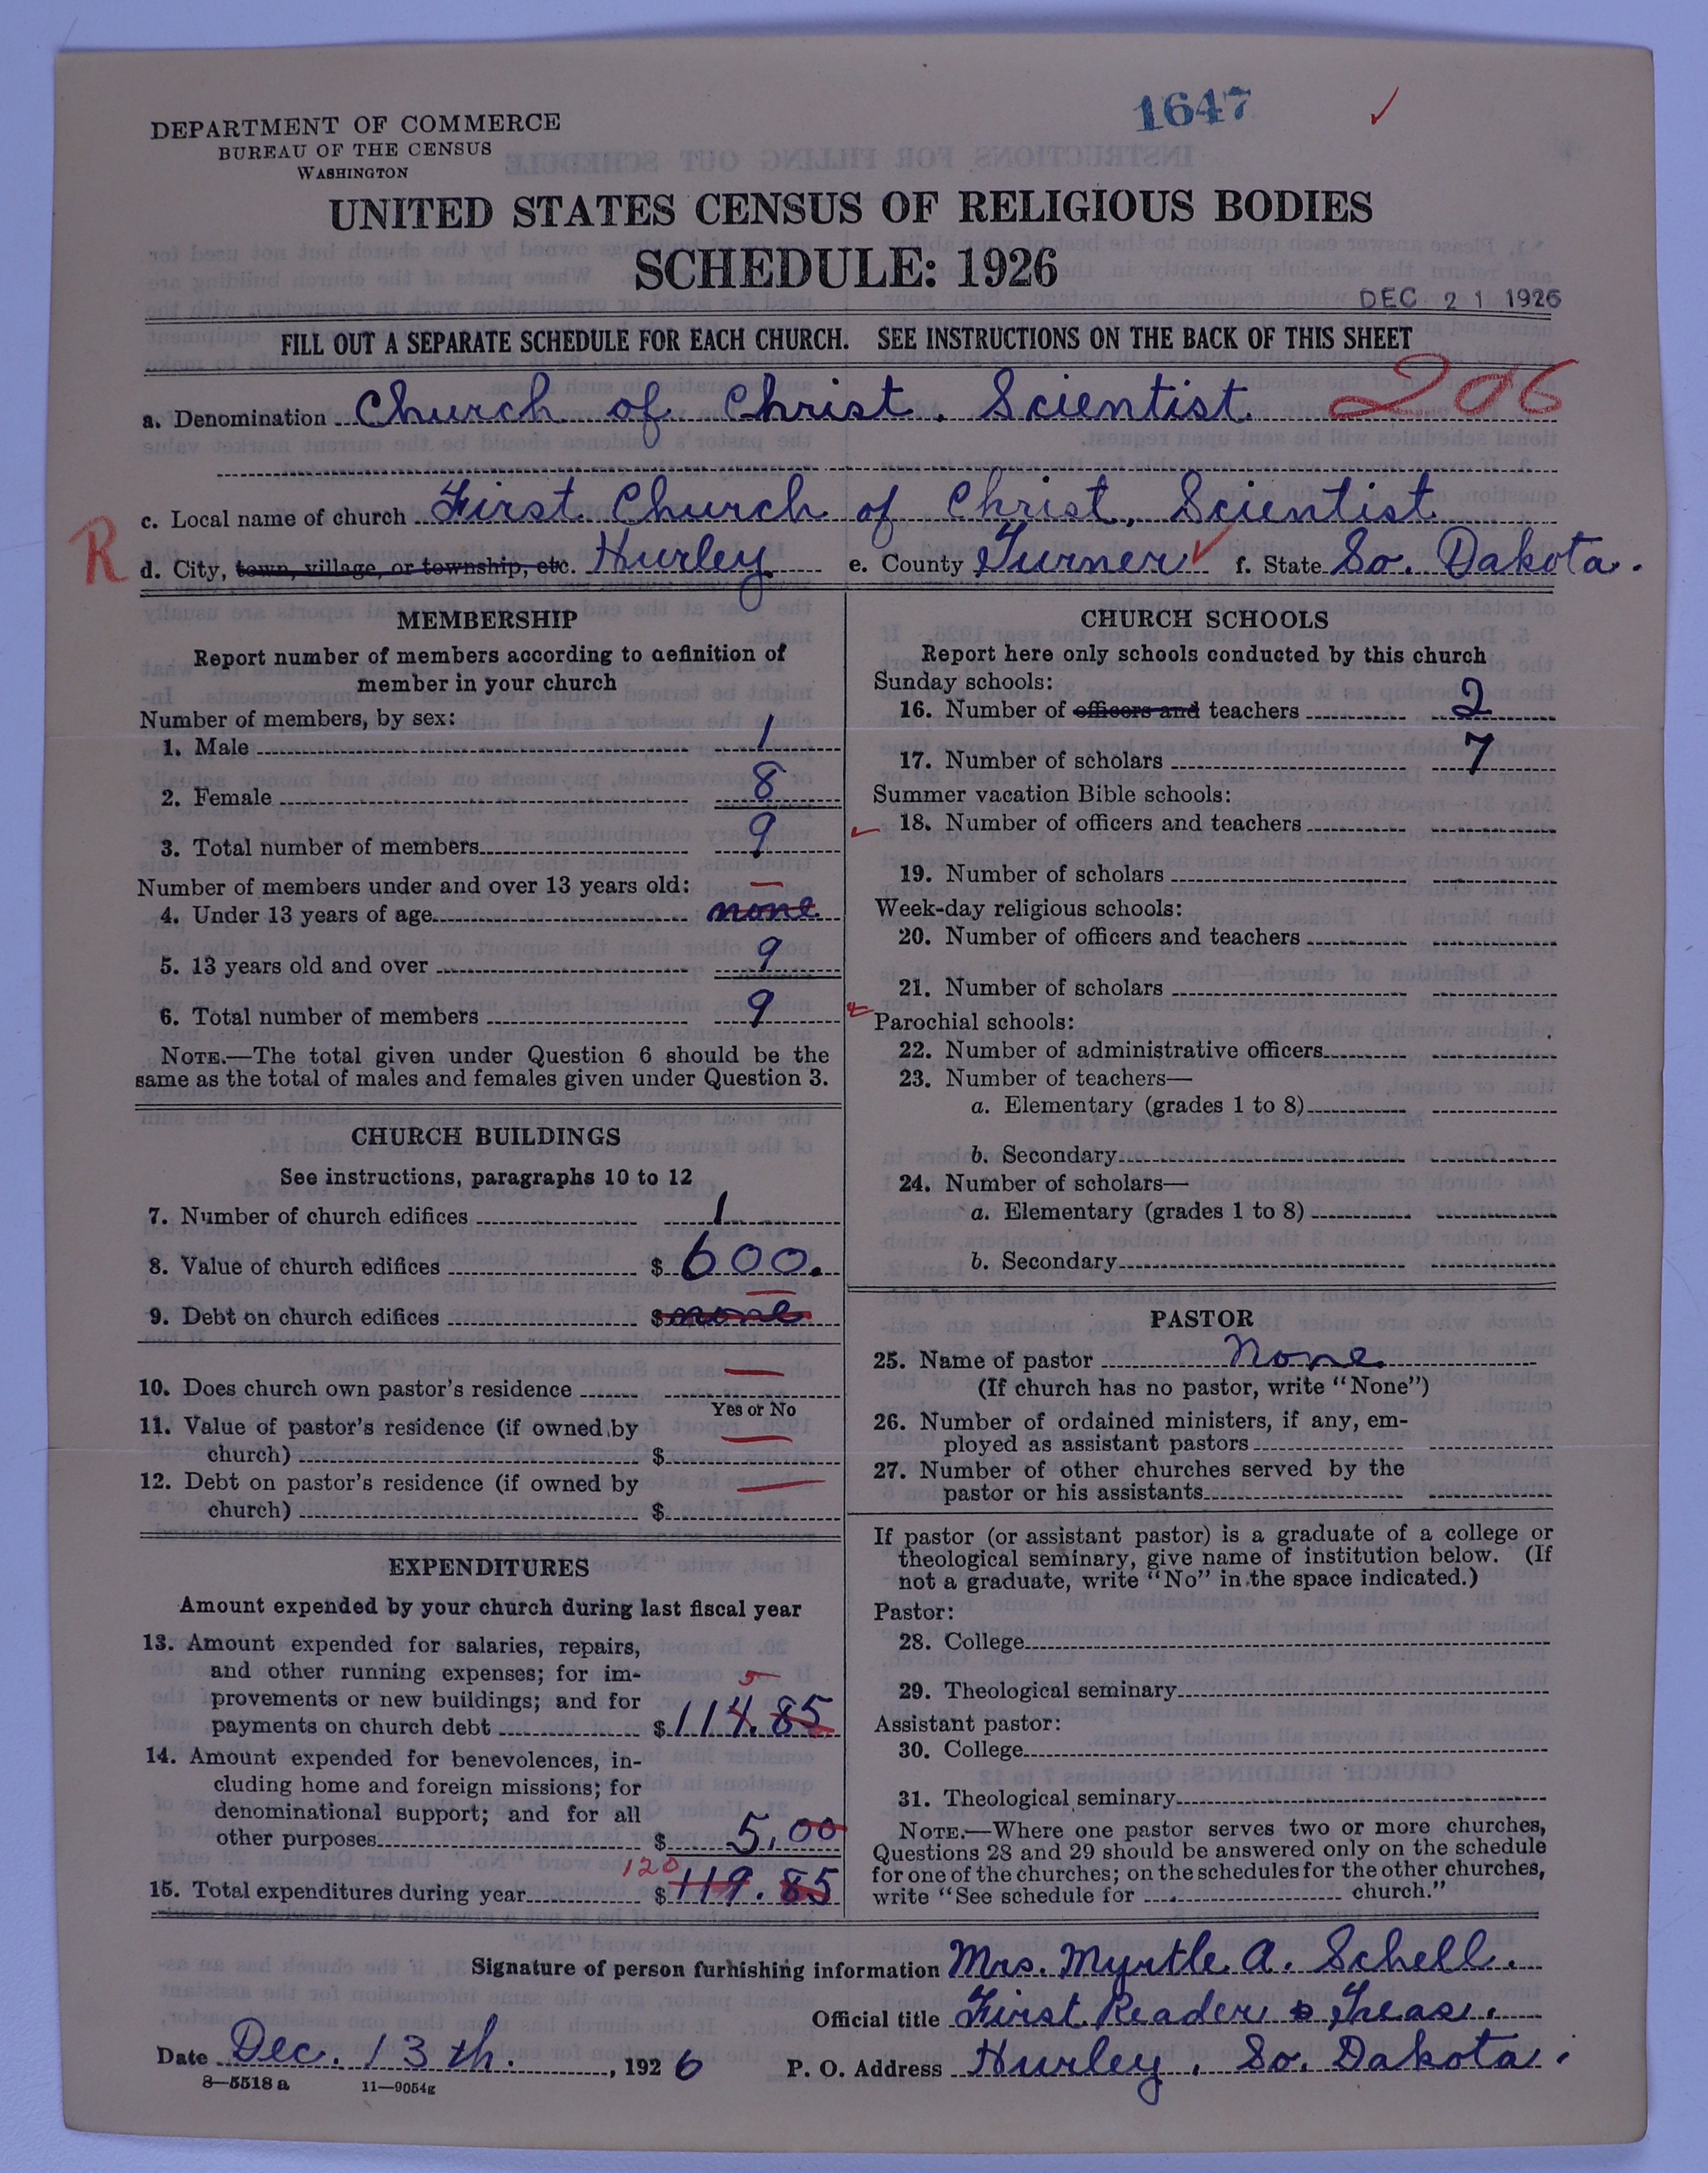 1647
DEPARTMENT OF COMMERCE
BUREAU OF THE CENSUS
WASHINGTON
UNITED STATES CENSUS OF RELIGIOUS BODIES
SCHEDULE: 1926
DEC 21 1926
FILL OUT A SEPARATE SCHEDULE FOR EACH CHURCH. SEE INSTRUCTIONS ON THE BACK OF THIS SHEET
206
a. Denomination Church of Christ, Scientist.
c. Local name of church First Church of Christ, Scientist
R
d. City, town, village, or township, etc. Hurley e. County Turner f. State So. Dakota.
MEMBERSHIP
Report number of members according to definition of
member in your church
Number of members, by sex:
1. Male 1
2. Female 8
3. Total number of members 9
Number of members under and over 13 years old:
4. Under 13 years of age none
5. 13 years old and over 9
6. Total number of members 9
NOTE.—The total given under Question 6 should be the
same as the total of males and females given under Question 3.
CHURCH BUILDINGS
See instructions, paragraphs 10 to 12
7. Number of church edifices 1
8. Value of church edifices $ 600.
9. Debt on church edifices $ none
10. Does church own pastor's residence
Yes or No
11. Value of pastor's residence (if owned by
church) $
12. Debt on pastor's residence (if owned by
church) $
EXPENDITURES
Amount expended by your church during last fiscal year
13. Amount expended for salaries, repairs,
and other running expenses; for im-
provements or new buildings; and for
5
payments on church debt $ 114.85
14. Amount expended for benevolences, in-
cluding home and foreign missions; for
denominational support; and for all
other purposes $ 5.00
120
15. Total expenditures during year $ 119.85
CHURCH SCHOOLS
Report here only schools conducted by this church
Sunday schools:
16. Number of officers and teachers 2
17. Number of scholars 7
Summer vacation Bible schools:
18. Number of officers and teachers
19. Number of scholars
Week-day religious schools:
20. Number of officers and teachers
21. Number of scholars
Parochial schools:
22. Number of administrative officers
23. Number of teachers—
a. Elementary (grades 1 to 8)
b. Secondary
24. Number of scholars—
a. Elementary (grades 1 to 8)
b. Secondary
PASTOR
25. Name of pastor None
(If church has no pastor, write "None")
26. Number of ordained ministers, if any, em-
ployed as assistant pastors
27. Number of other churches served by the
pastor or his assistants
If pastor (or assistant pastor) is a graduate of a college or
theological seminary, give name of institution below. (If
not a graduate, write "No" in the space indicated.)
Pastor:
28. College
29. Theological seminary
Assistant pastor:
30. College
31. Theological seminary
NOTE.—Where one pastor serves two or more churches,
Questions 28 and 29 should be answered only on the schedule
for one of the churches; on the schedules for the other churches,
write "See schedule for church."
Signature of person furnishing information Mrs. Myrtle A. Schell.
Official title First Reader & Treas.
Date Dec. 13th. , 1926 P. O. Address Hurley, So. Dakota.
8—5518 a 11—9054g